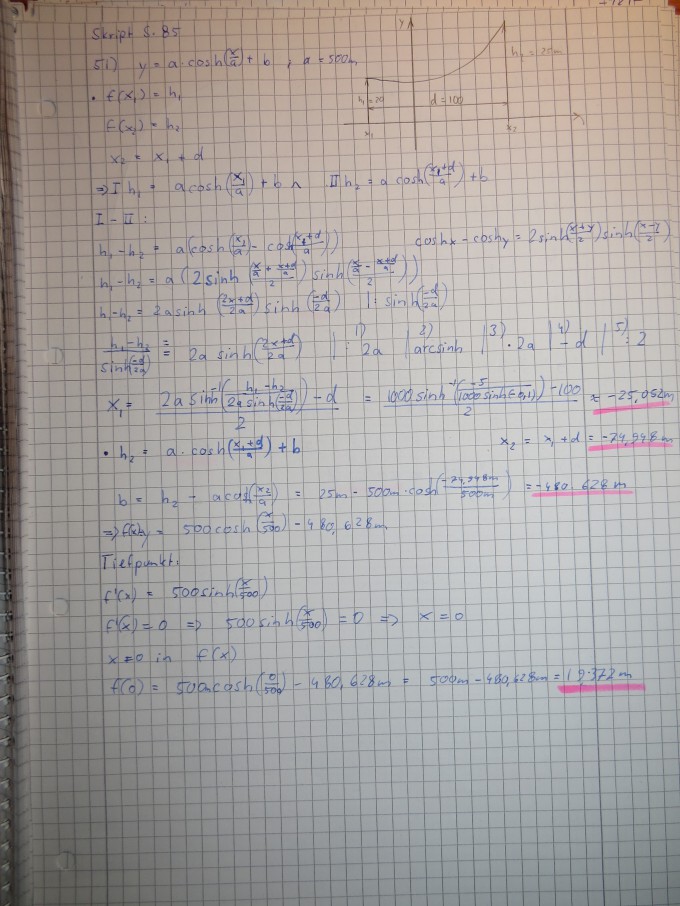 Skript S. 85
5.1) y = a·cosh(x/a) + b , a = 500m
y
h₂ = 25m
h₁ = 20
d = 100
x₁
x₂
x
• f(x₁) = h₁
f(x₂) = h₂
x₂ = x₁ + d
⇒ I h₁ = a cosh(x₁/a) + b ∧ II h₂ = a cosh((x₁+d)/a) + b
I - II :
h₁-h₂ = a(cosh(x₁/a) - cosh((x₁+d)/a))
coshx - coshy = 2 sinh((x+y)/2) sinh((x-y)/2)
h₁-h₂ = a (2 sinh ((x/a + (x+d)/a)/2) sinh ((x/a - (x+d)/a)/2))
h₁-h₂ = 2a sinh ((2x+d)/2a) sinh (-d/2a) | : sinh(-d/2a)
(h₁-h₂)/sinh(-d/2a) = 2a sinh((2x+d)/2a) | 1) : 2a | 2) arcsinh | 3) · 2a | 4) - d | 5) : 2
x₁ = (2a sinh⁻¹((h₁-h₂)/(2a sinh(-d/2a))) - d)/2 = (1000 sinh⁻¹(-5/(1000 sinh(-0,1))) - 100)/2 ≈ -25,052m
x₂ = x₁ + d = -74,948m
• h₂ = a · cosh((x₁+d)/a) + b
b = h₂ - a cosh(x₂/a) = 25m - 500m·cosh(-74,948m/500m) = -480,628m
⇒ f(x) = 500cosh(x/500) - 480,628m
Tiefpunkt:
f'(x) = 500sinh(x/500)
f'(x) = 0 ⇒ 500 sinh(x/500) = 0 ⇒ x = 0
x=0 in f(x)
f(0) = 500m cosh(0/500) - 480,628m = 500m - 480,628m = 19,372m